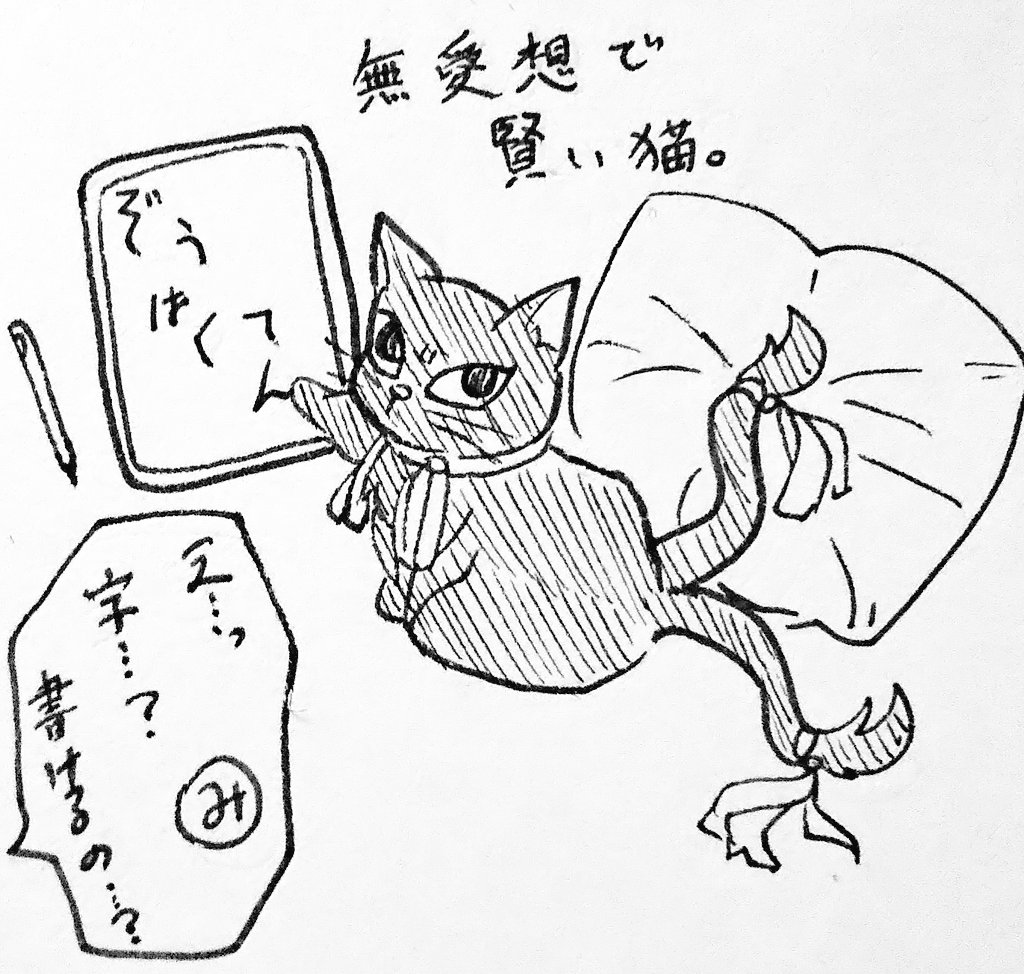 無愛想で
賢い猫。
ぞうはくてん
え…っ
字…？
書けるの…？
み